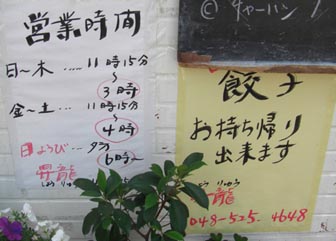 営業時間
日～木 ..... 11時15分
～
3時
金～土 ..... 11時15分
～
4時
日ようび ... 夕方
6時～
昇龍
しょうりゅう
© チャーハン
餃子
お持ち帰り
出来ます
りゅう
龍
048-525-4648